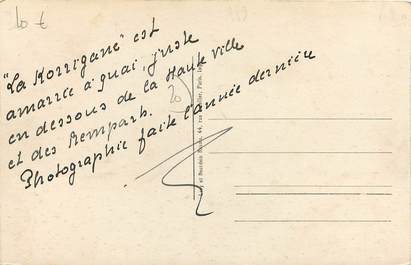 10 €
"La Korrigane" est
amarrée à quai, juste
en dessous de la Haute ville
et des Remparts.
Photographie faite l'année dernière
20
Lévy et Neurdein Réunis, 44, rue Letellier, Paris.